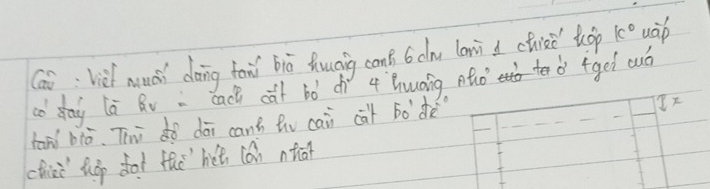 Câu : Việt muốn dùng tấm bìa hvuông cạnh 6 dm làm 1 chiếc hộp k° nắp
có đáy là hv = cách cắt bỏ đi 4 hvuông nhỏ ở 4 góc của
tấm bìa. Tìm độ dài cạnh hv cần cắt bỏ để
chiếc hộp đạt thể tích lớn nhất
x